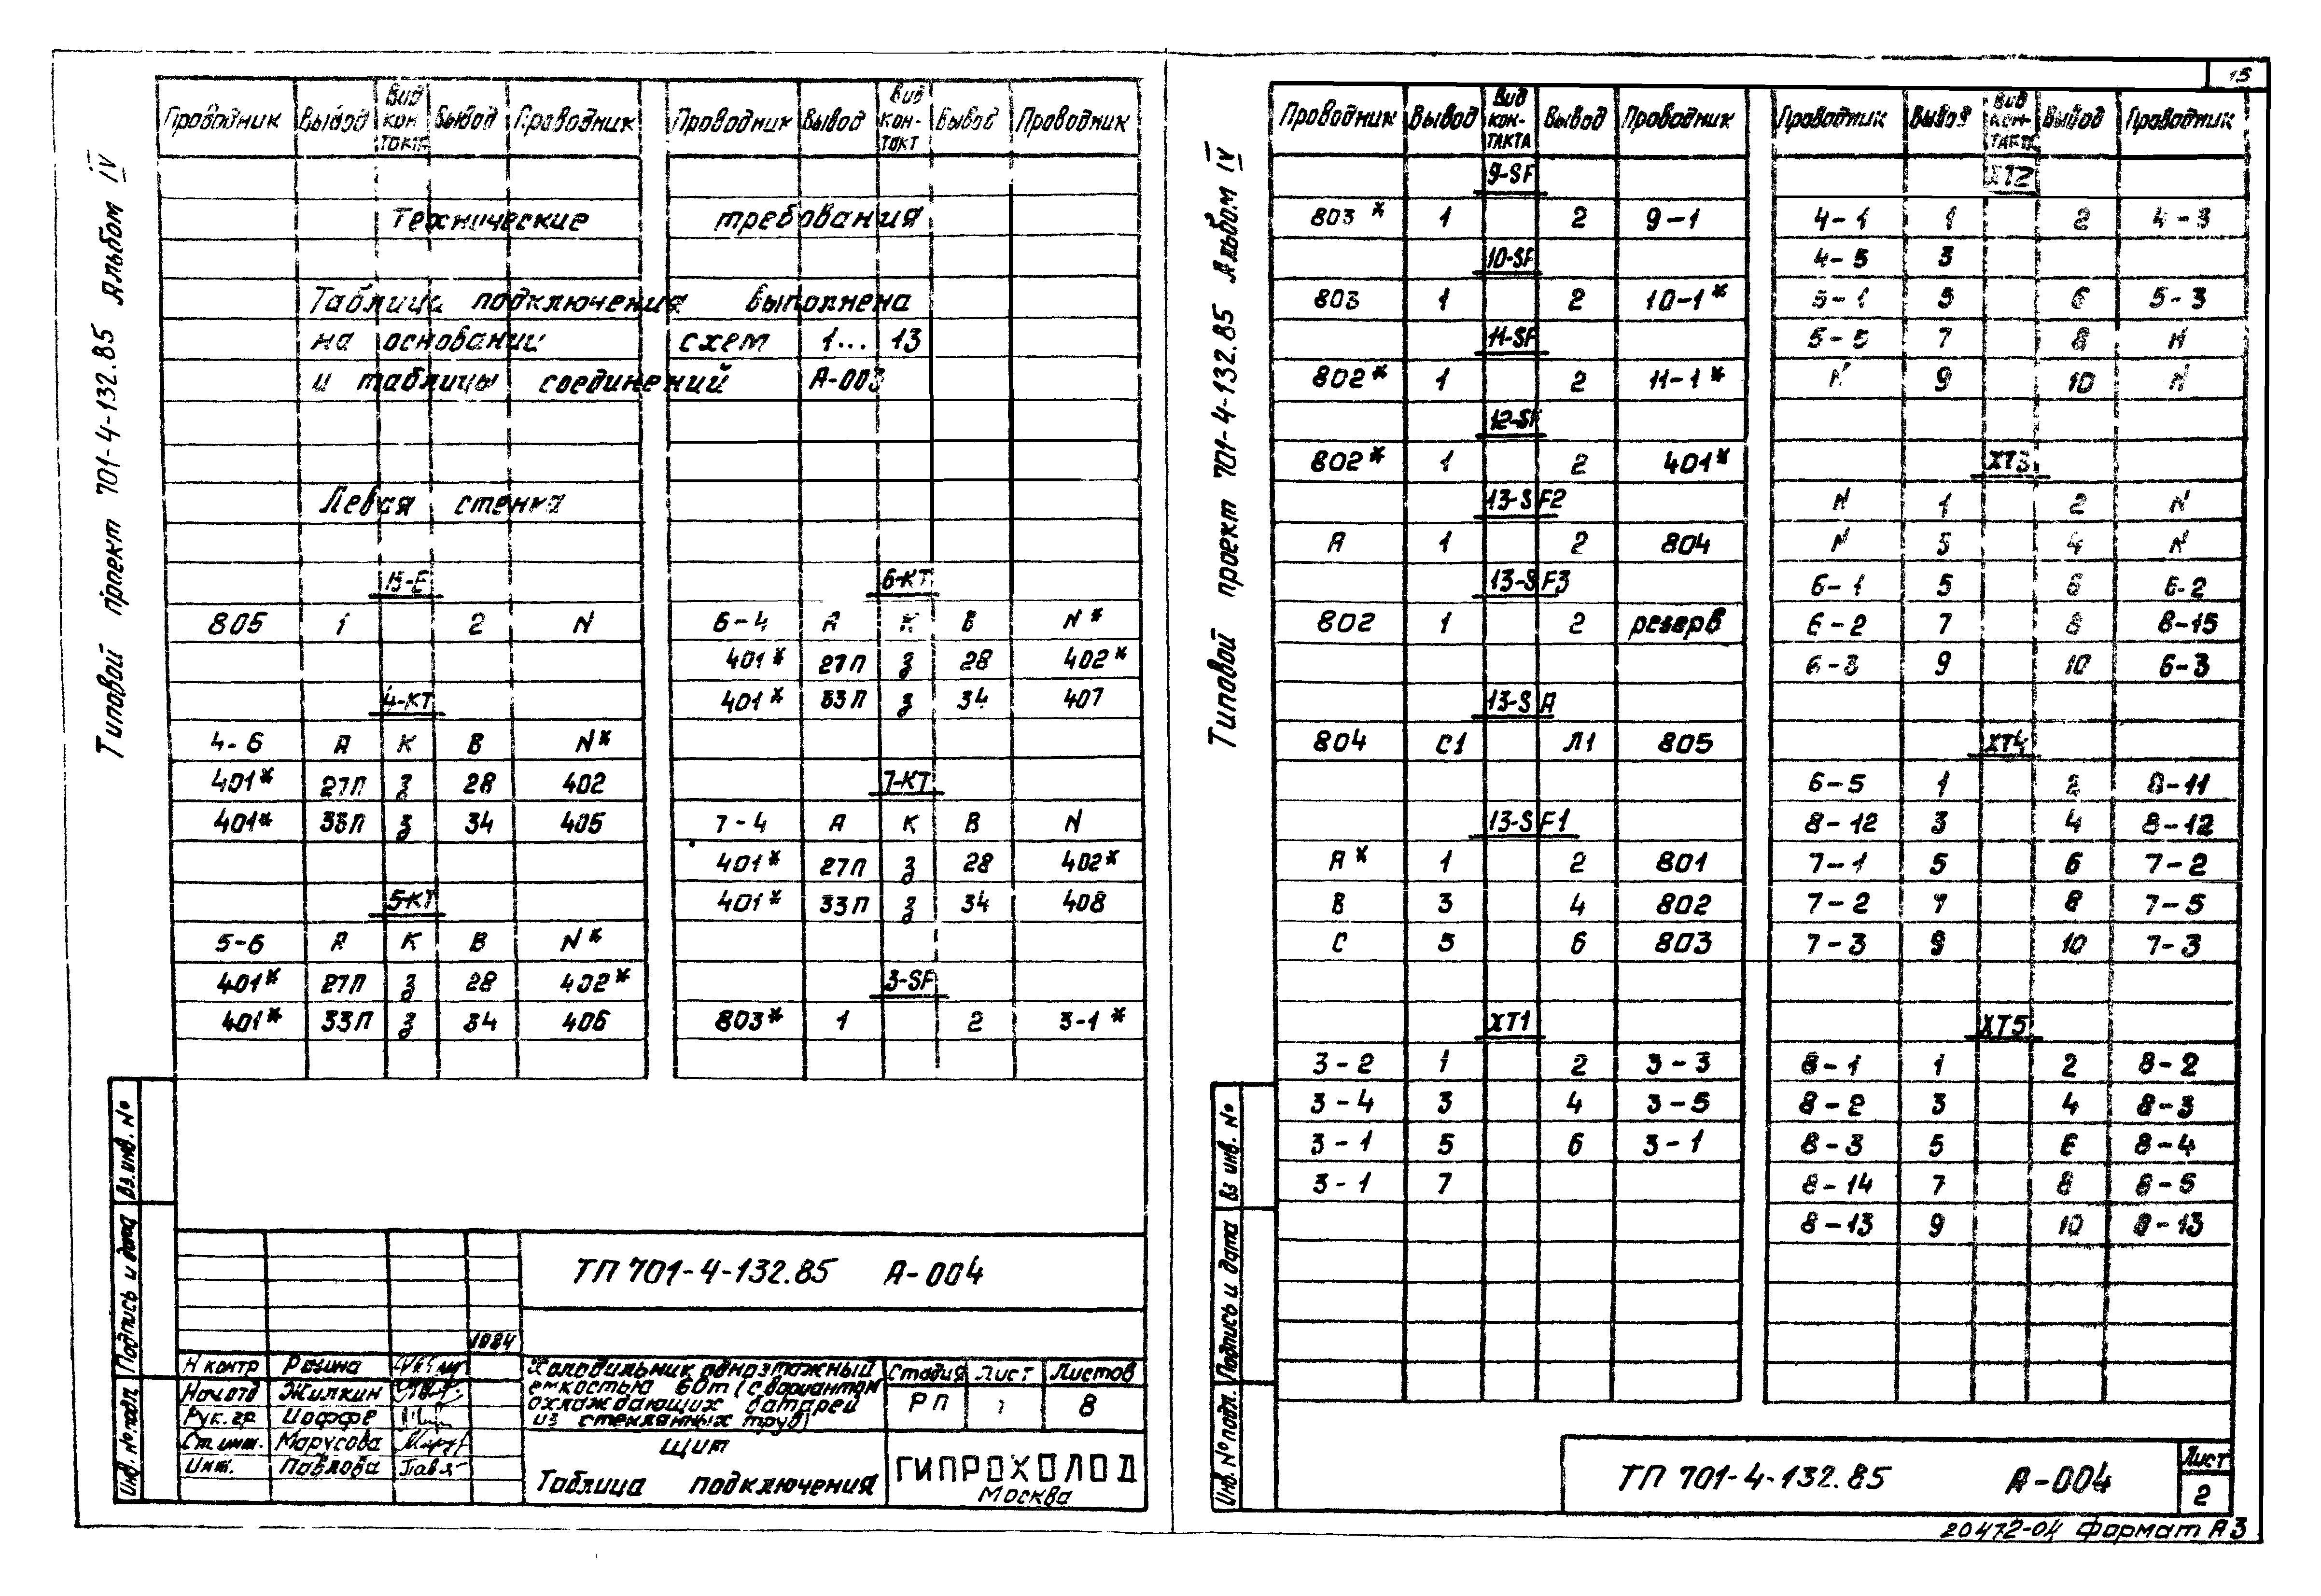 Типовой проект 701-4-132.85 Альбом IV
Проводник Вывод Вид контакта Вывод Проводник
Проводник Вывод Вид кон-такт Вывод Проводник
Технические требования
Таблица подключения выполнена
на основании схем 1... 13
и таблицы соединений А-003
Левая стенка
805 1 2 N
4-КТ
4-6 А К В N*
401* 27П з 28 402
401* 33П з 34 405
5-КТ
5-6 А К В N*
401* 27П з 28 402*
401* 33П з 34 406
6-КТ
6-4 А К В N*
401* 27П з 28 402*
401* 33П з 34 407
7-КТ
7-4 А К В N
401* 27П з 28 402*
401* 33П з 34 408
3-SF
803* 1 2 3-1*
Инв. № подл. Подпись и дата Вз. инв. №
ТП 701-4-132.85 А-004
1984
Н контр Розина
Нач отд Жилкин
Рук. гр Иоффе
Ст инж. Марусова
Инж. Павлова
Холодильник одноэтажный
емкостью 60т (с вариантом
охлаждающих батарей
из стеклянных труб)
Стадия Лист Листов
РП 1 8
Щит
Таблица подключения
ГИПРОХОЛОД
Москва
15
Типовой проект 701-4-132.85 Альбом IV
Проводник Вывод Вид кон-такта Вывод Проводник
Проводник Вывод Вид кон-такта Вывод Проводник
9-SF
803* 1 2 9-1
10-SF
803 1 2 10-1*
11-SF
802* 1 2 11-1*
12-SF
802* 1 2 401*
13-SF2
А 1 2 804
13-SF3
802 1 2 резерв
13-SA
804 С1 Л1 805
13-SF1
А* 1 2 801
В 3 4 802
С 5 6 803
ХТ1
3-2 1 2 3-3
3-4 3 4 3-5
3-1 5 6 3-1
3-1 7
ХТ2
4-1 1 2 4-3
4-5 3
5-1 5 6 5-3
5-5 7 8 N
N 9 10 N
ХТ3
N 1 2 N
N 3 4 N
6-1 5 6 6-2
6-2 7 8 8-15
6-3 9 10 6-3
ХТ4
6-5 1 2 8-11
8-12 3 4 8-12
7-1 5 6 7-2
7-2 7 8 7-5
7-3 9 10 7-3
ХТ5
8-1 1 2 8-2
8-2 3 4 8-3
8-3 5 6 8-4
8-14 7 8 8-5
8-13 9 10 8-13
Инв. № подл. Подпись и дата Вз инв. №
ТП 701-4-132.85 А-004
Лист
2
20472-04 Формат А3